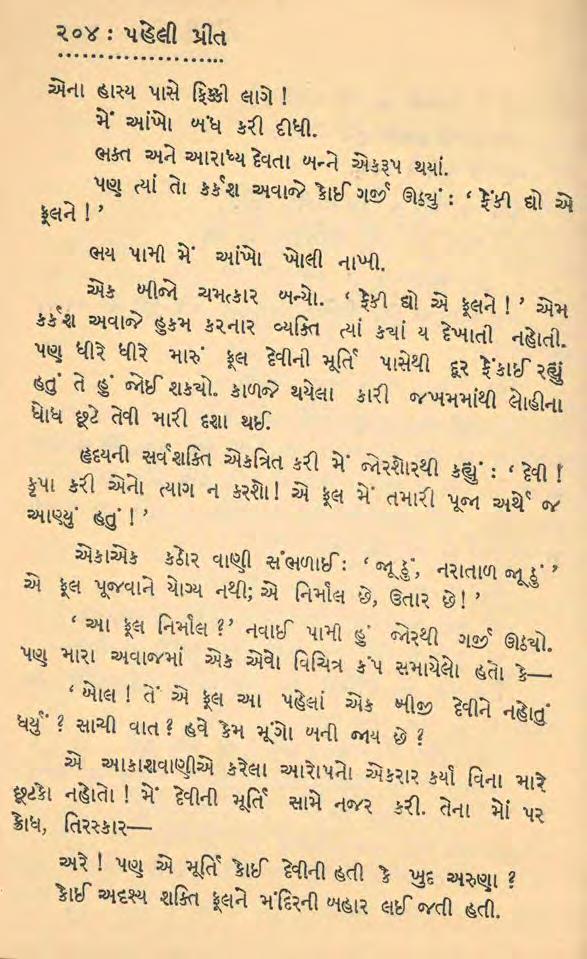 ૨૦૪ : પહેલી પ્રીત
એના હાસ્ય પાસે ફિક્કી લાગે !
મેં આંખો બંધ કરી દીધી.
ભક્ત અને આરાધ્ય દેવતા બન્ને એકરૂપ થયાં.
પણ ત્યાં તો કર્કશ અવાજે કોઈ ગર્જી ઊઠ્યું : ‘ ફેંકી દ્યો એ
ફૂલને ! ’
ભય પામી મેં આંખો ખોલી નાખી.
એક બીજો ચમત્કાર બન્યો. ‘ ફેંકી દ્યો એ ફૂલને ! ’ એમ
કર્કશ અવાજે હુકમ કરનાર વ્યક્તિ ત્યાં કયાં ય દેખાતી નહોતી.
પણ ધીરે ધીરે મારું ફૂલ દેવીની મૂર્તિ પાસેથી દૂર ફેંકાઈ રહ્યું
હતું તે હું જોઈ શકયો. કાળજે થયેલા કારી જખમમાંથી લોહીના
ધોધ છૂટે તેવી મારી દશા થઈ.
હૃદયની સર્વશક્તિ એકત્રિત કરી મેં જોરશોરથી કહ્યું : ‘ દેવી !
કૃપા કરી એનો ત્યાગ ન કરશો ! એ ફૂલ મેં તમારી પૂજા અર્થે જ
આણ્યું હતું ! ’
એકાએક કઠોર વાણી સંભળાઈ : ‘ જૂઠું, નરાતાળ જૂઠું ’
એ ફૂલ પૂજવાને યોગ્ય નથી; એ નિર્માલ છે, ઉતાર છે ! ’
‘ આ ફૂલ નિર્માલ ? ’ નવાઈ પામી હું જોરથી ગર્જી ઊઠયો.
પણ મારા અવાજમાં એક એવો વિચિત્ર કંપ સમાયેલો હતો કે—
‘ બોલ ! તેં એ ફૂલ આ પહેલાં એક બીજી દેવીને નહોતું
ધર્યું ? સાચી વાત ? હવે કેમ મૂંગો બની જાય છે ?
એ આકાશવાણીએ કરેલા આરોપનો એકરાર કર્યા વિના મારે
છૂટકો નહોતો ! મેં દેવીની મૂર્તિ સામે નજર કરી. તેના મોં પર
ક્રોધ, તિરસ્કાર—
અરે ! પણ એ મૂર્તિ કોઈ દેવીની હતી કે ખુદ અરુણા ?
કોઈ અદશ્ય શક્તિ ફૂલને મંદિરની બહાર લઈ જતી હતી.